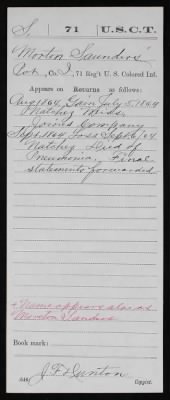 S. | 71 | U.S.C.T.
Morton Saunders
Pvt., Co. I, 71 Reg't U. S. Colored Inf.
Appears on Returns as follows:
Aug 1864, Gain July 5, 1864
Natchez Miss.
Joined Company
Sept. 1864, Loss Sept. 6/64
Natchez Died of
Pneumonia. Final
statements forwarded
* Name appears also as
Moreton Sanders
Book mark:
(546)
J. F. Denton
Copyist.